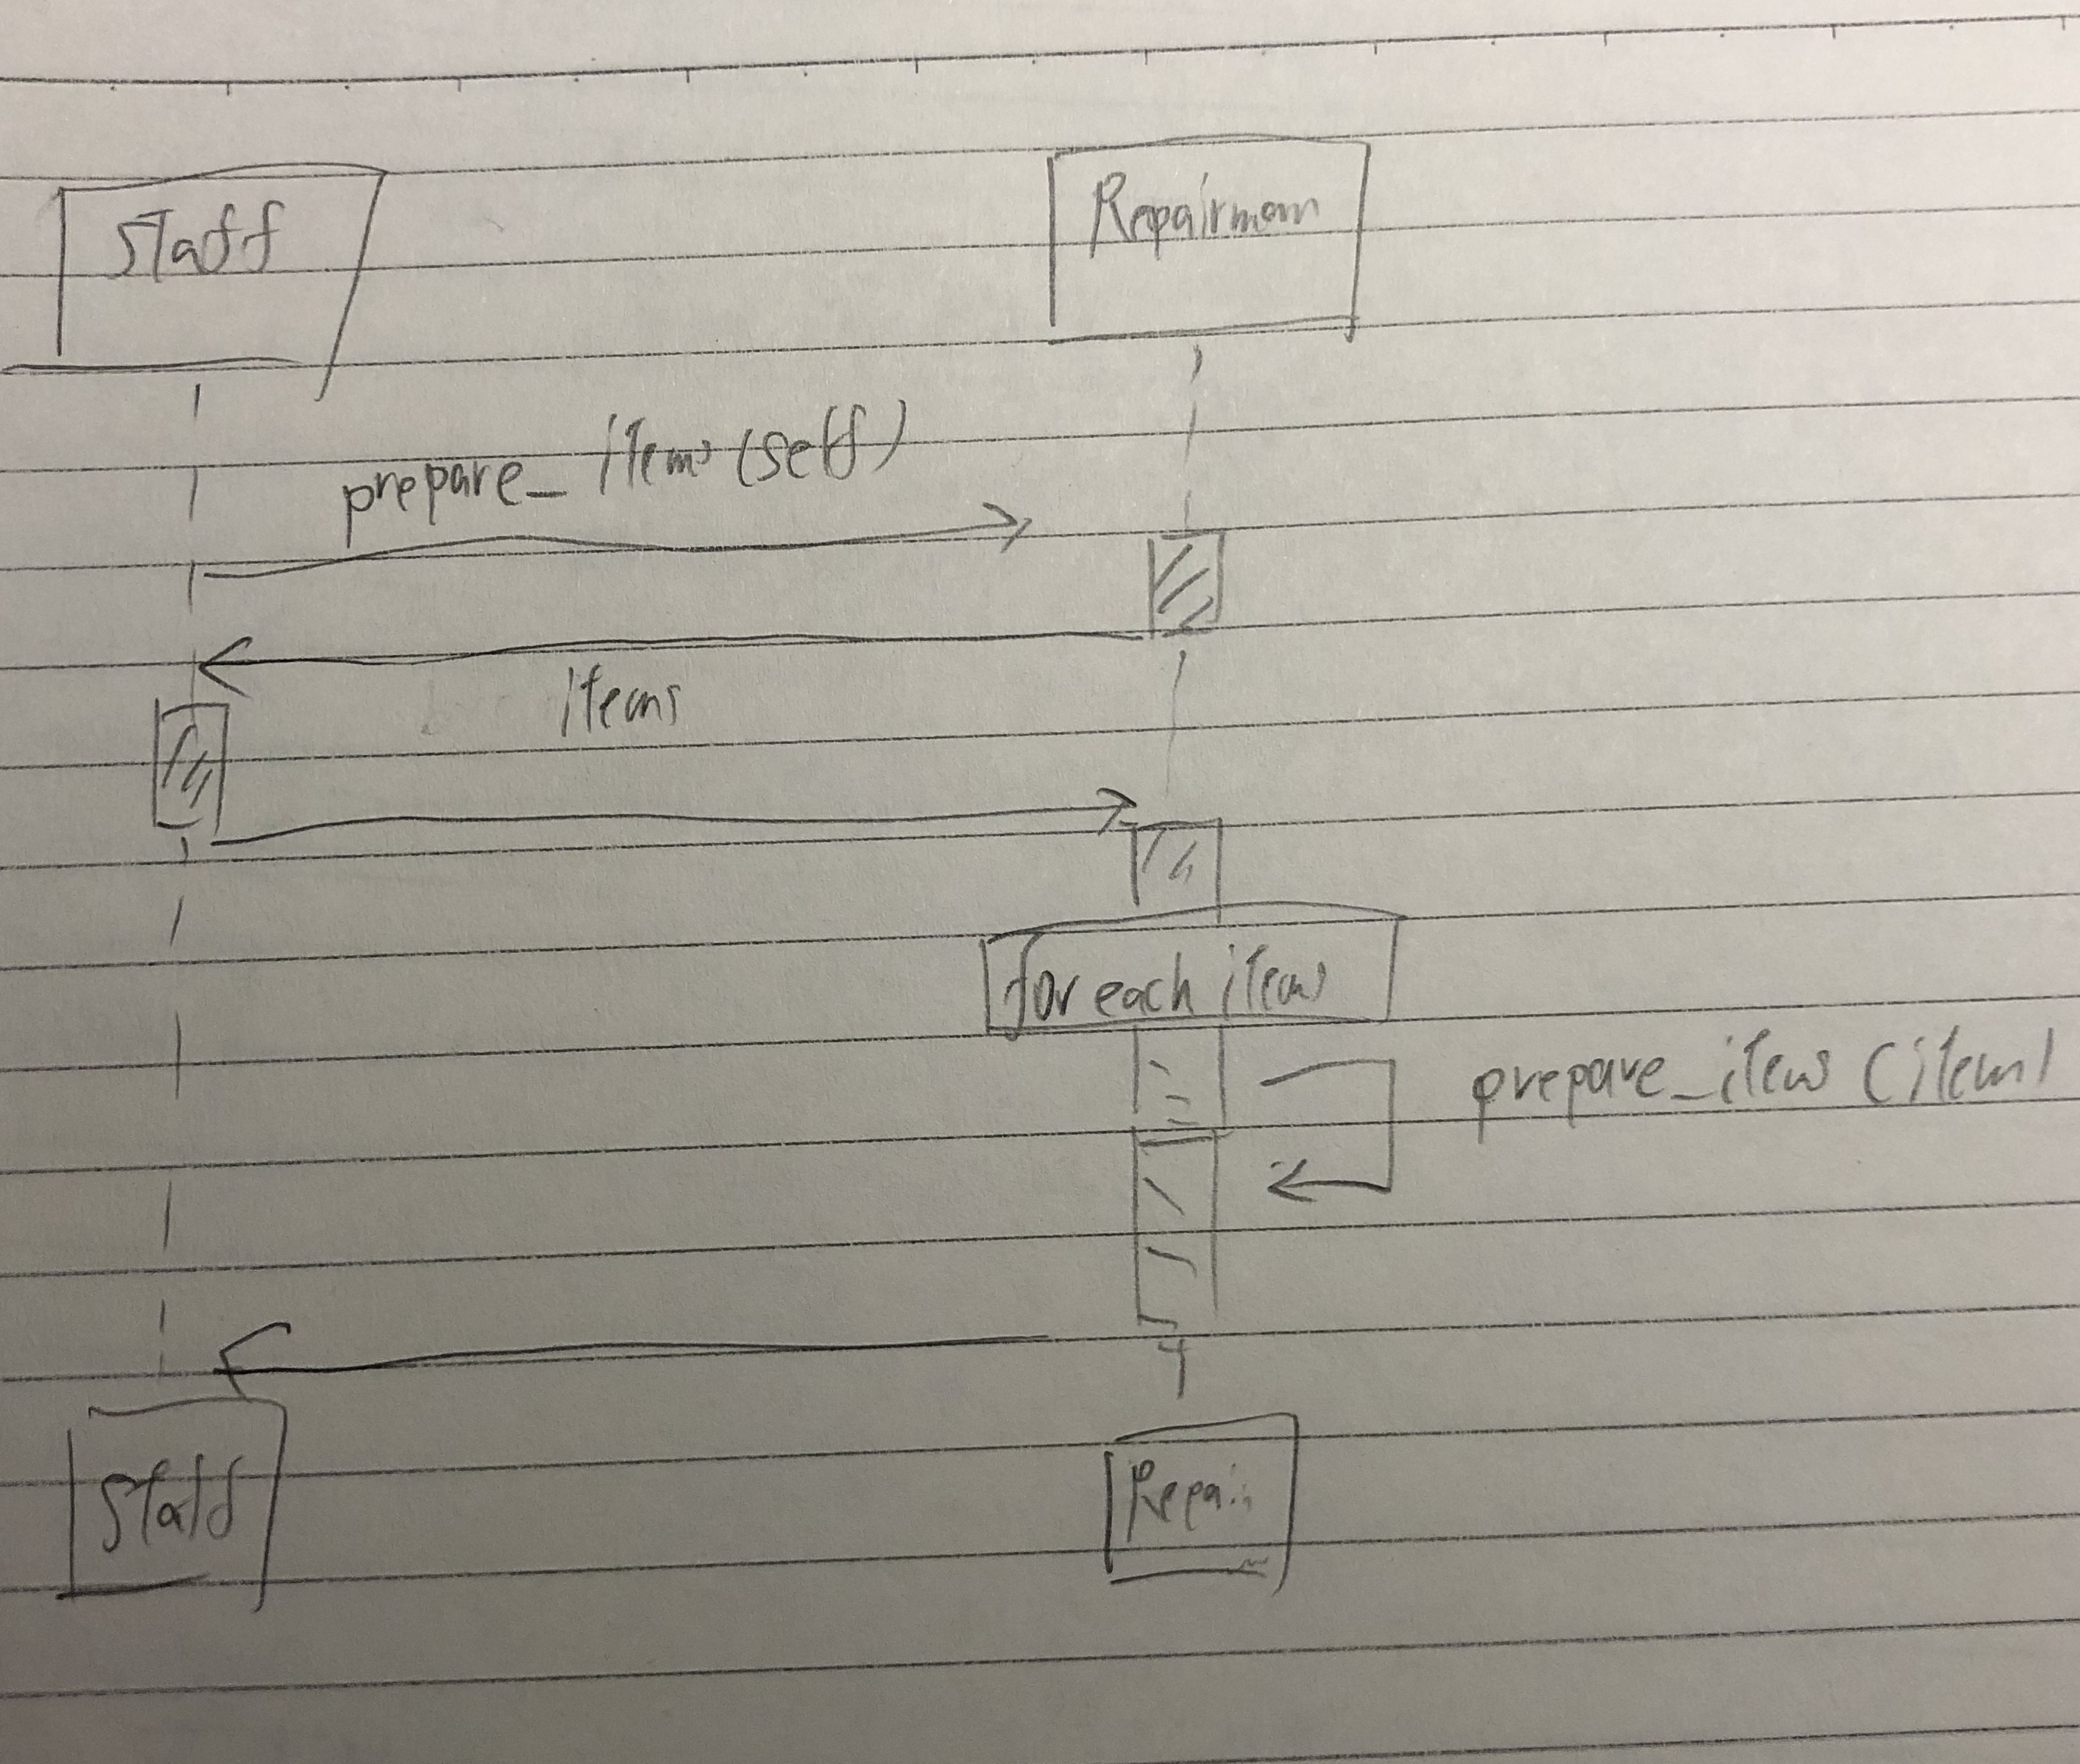 Staff
Repairman
prepare_items (self)
items
for each items
prepare_items (item)
Staff
Repair